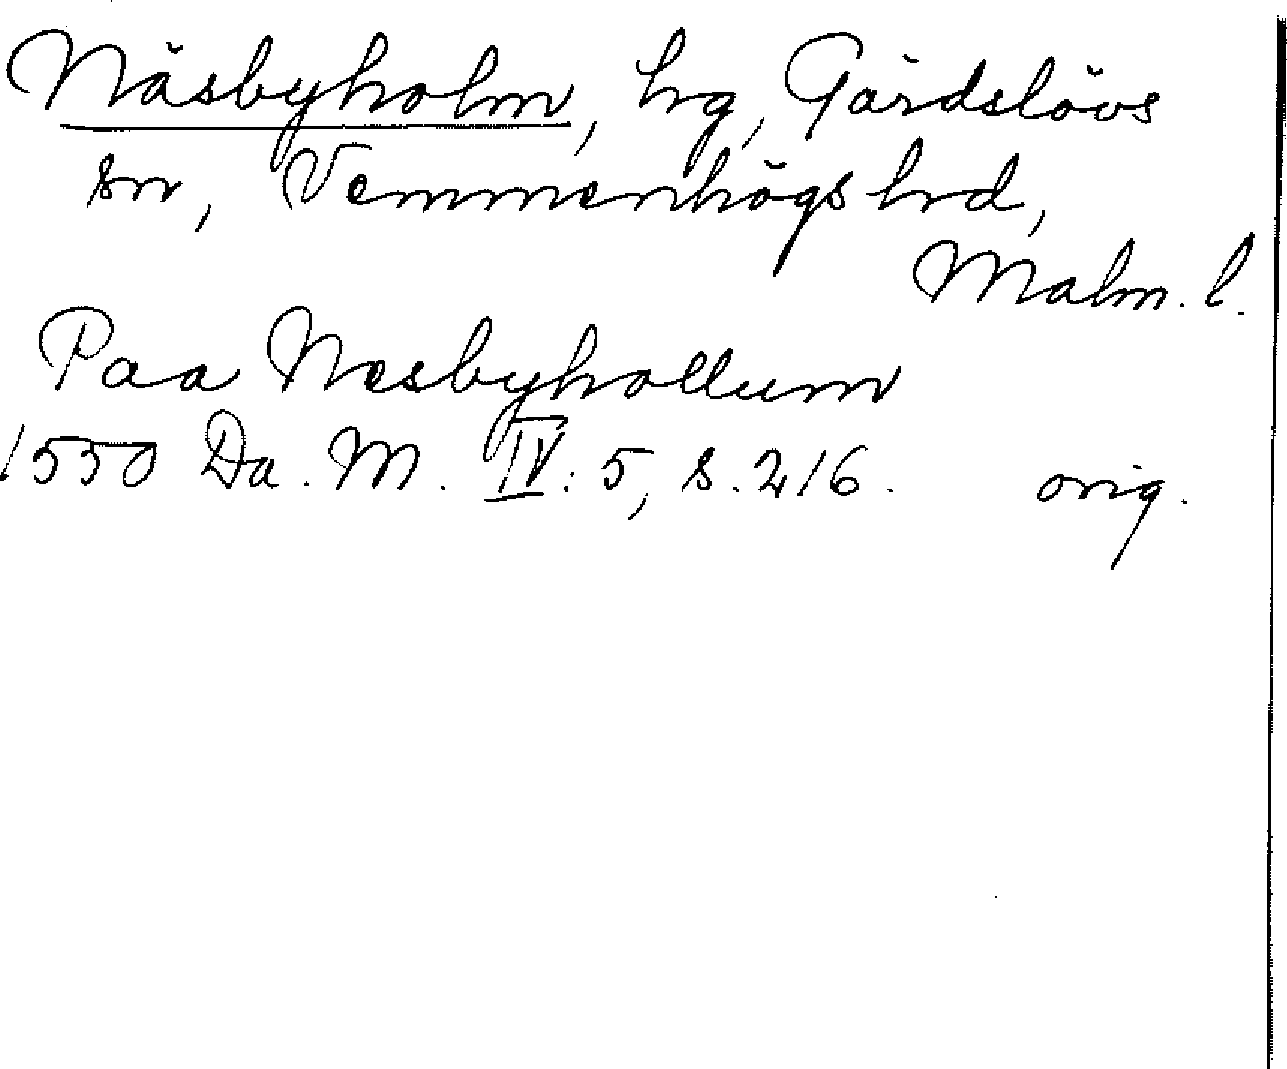 Näsbyholm, hg, Gärdslövs
sn, Vemmenhögs hrd,
Malm. l.
Paa Nesbyhollum
1550 Da. M. IV: 5, s. 216. orig.